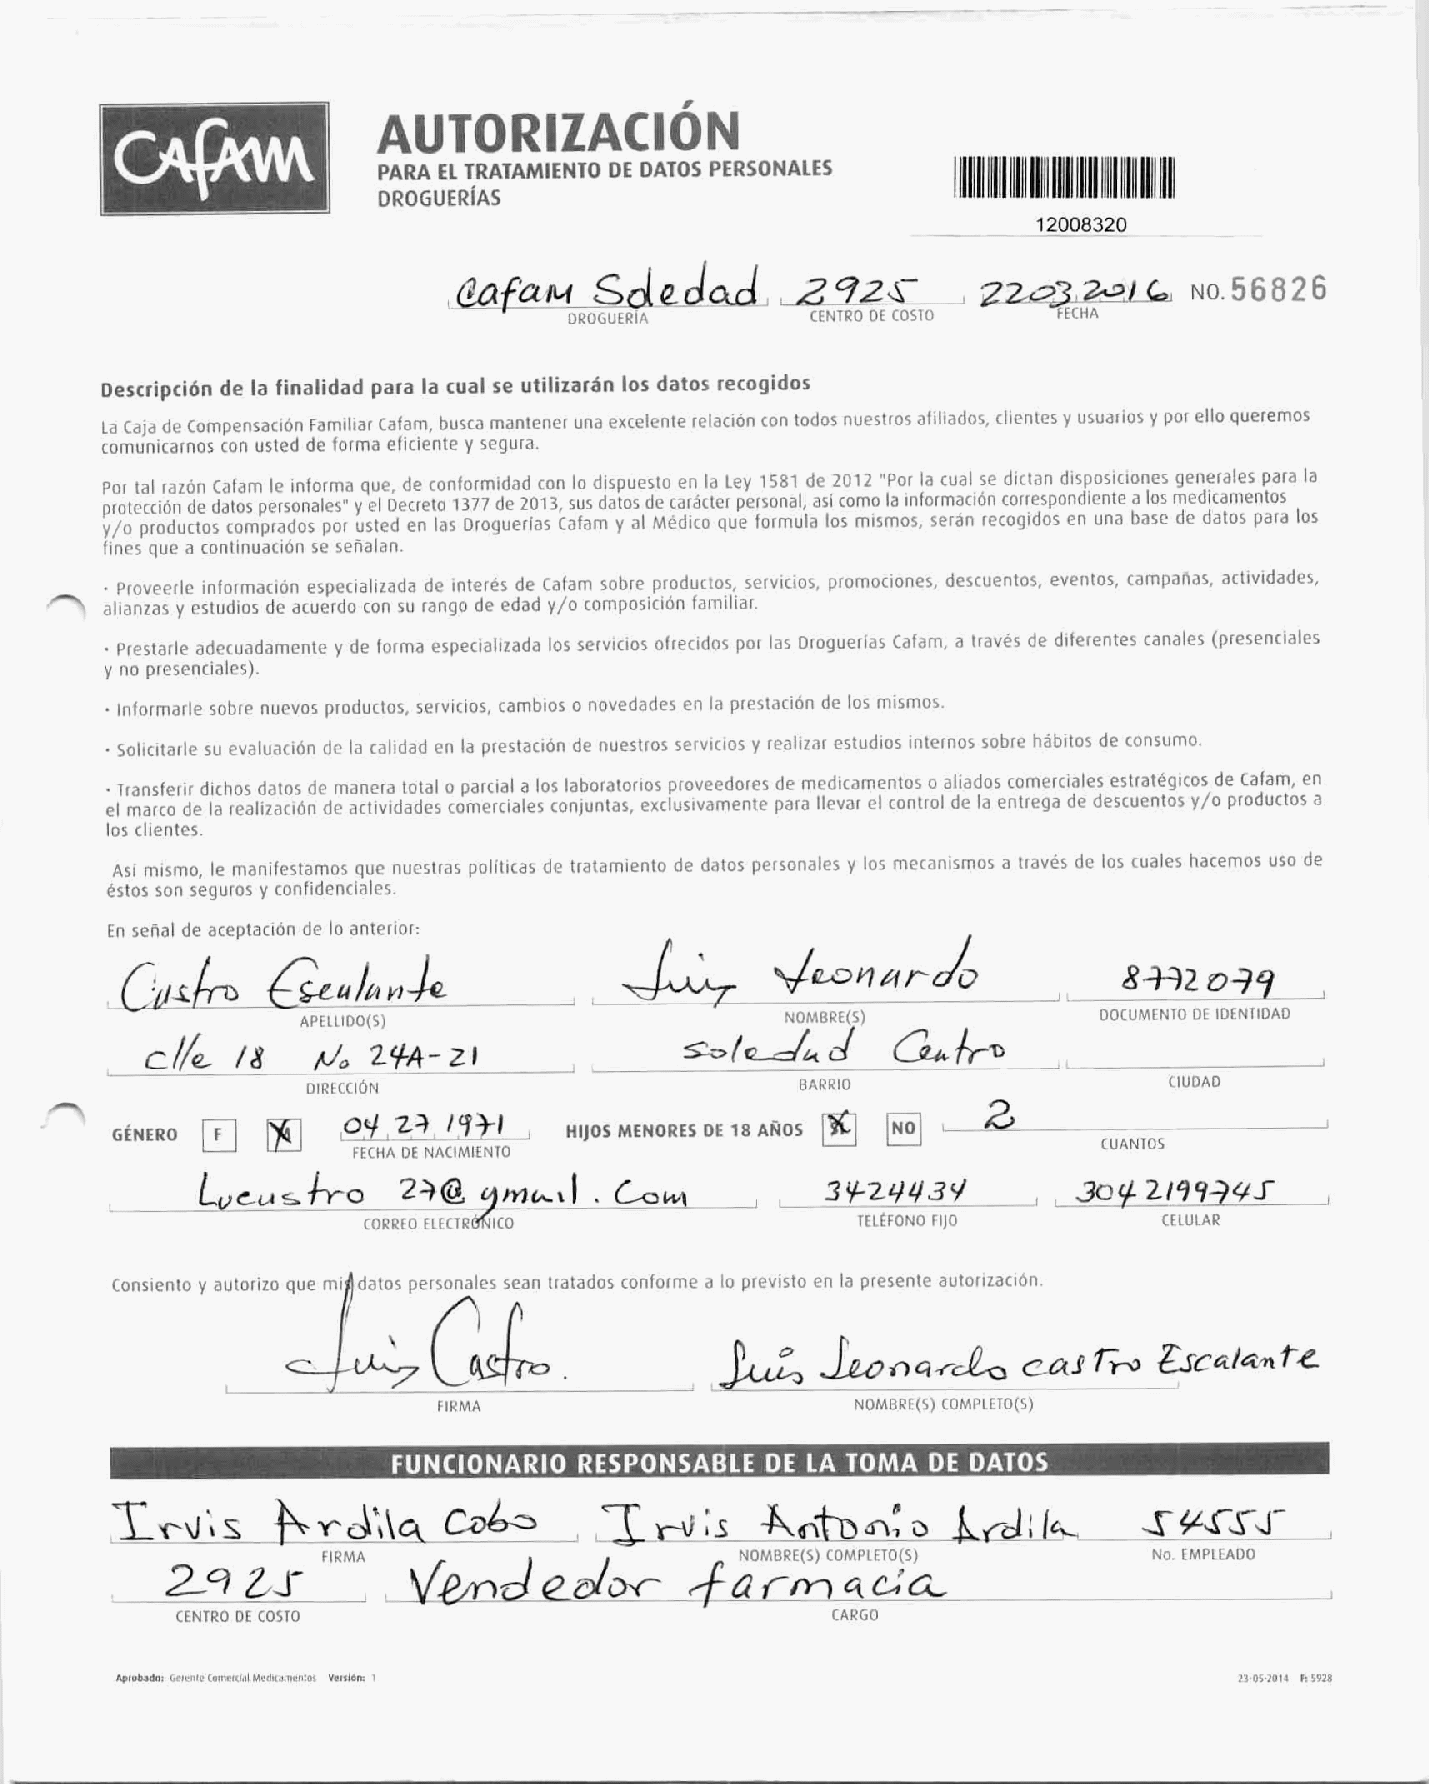 CAFAM
AUTORIZACIÓN
PARA EL TRATAMIENTO DE DATOS PERSONALES
DROGUERÍAS
12008320
Cafam Soledad 2925 22032016 NO. 56826
DROGUERÍA CENTRO DE COSTO FECHA
Descripción de la finalidad para la cual se utilizarán los datos recogidos
La Caja de Compensación Familiar Cafam, busca mantener una excelente relación con todos nuestros afiliados, clientes y usuarios y por ello queremos
comunicarnos con usted de forma eficiente y segura.
Por tal razón Cafam le informa que, de conformidad con lo dispuesto en la Ley 1581 de 2012 "Por la cual se dictan disposiciones generales para la
protección de datos personales" y el Decreto 1377 de 2013, sus datos de carácter personal, así como la información correspondiente a los medicamentos
y/o productos comprados por usted en las Droguerías Cafam y al Médico que formula los mismos, serán recogidos en una base de datos para los
fines que a continuación se señalan.
· Proveerle información especializada de interés de Cafam sobre productos, servicios, promociones, descuentos, eventos, campañas, actividades,
alianzas y estudios de acuerdo con su rango de edad y/o composición familiar.
· Prestarle adecuadamente y de forma especializada los servicios ofrecidos por las Droguerías Cafam, a través de diferentes canales (presenciales
y no presenciales).
· Informarle sobre nuevos productos, servicios, cambios o novedades en la prestación de los mismos.
· Solicitarle su evaluación de la calidad en la prestación de nuestros servicios y realizar estudios internos sobre hábitos de consumo.
· Transferir dichos datos de manera total o parcial a los laboratorios proveedores de medicamentos o aliados comerciales estratégicos de Cafam, en
el marco de la realización de actividades comerciales conjuntas, exclusivamente para llevar el control de la entrega de descuentos y/o productos a
los clientes.
Así mismo, le manifestamos que nuestras políticas de tratamiento de datos personales y los mecanismos a través de los cuales hacemos uso de
éstos son seguros y confidenciales.
En señal de aceptación de lo anterior:
Castro Escalante Luis Leonardo 8772079
APELLIDO(S) NOMBRE(S) DOCUMENTO DE IDENTIDAD
clle 18 No 24A-21 Soledad Centro
DIRECCIÓN BARRIO CIUDAD
GÉNERO F M 04 27 1971 HIJOS MENORES DE 18 AÑOS NO 2
FECHA DE NACIMIENTO CUANTOS
Lucastro 27@gmail.Com 3424434 3042199745
CORREO ELECTRÓNICO TELÉFONO FIJO CELULAR
Consiento y autorizo que mis datos personales sean tratados conforme a lo previsto en la presente autorización.
Luis Castro. Luis Leonardo castro Escalante
FIRMA NOMBRE(S) COMPLETO(S)
FUNCIONARIO RESPONSABLE DE LA TOMA DE DATOS
Irvis Ardila Cobo Irvis Antonio Ardila 54555
FIRMA NOMBRE(S) COMPLETO(S) No. EMPLEADO
2925 Vendedor farmacia
CENTRO DE COSTO CARGO
Aprobado: Gerente Comercial Medicamentos Versión: 1 23-05-2014 F: 5928